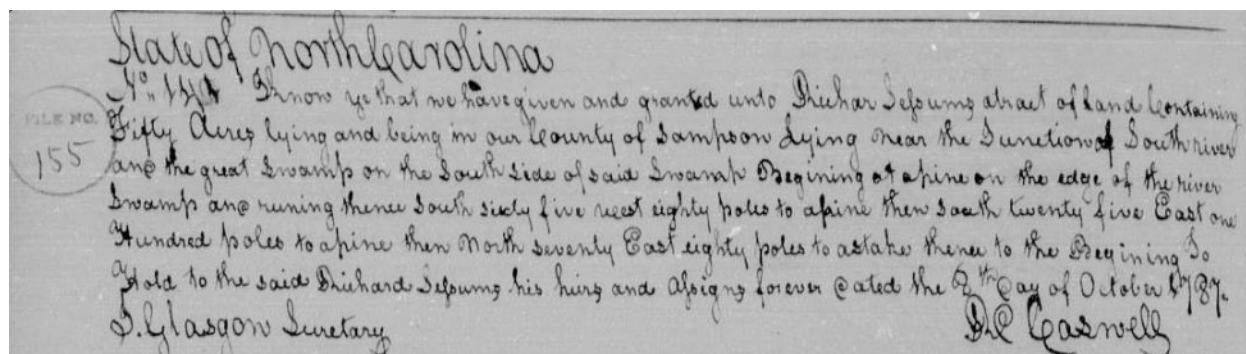 State of North Carolina
No. 141 Know ye that we have given and granted unto Richar Sessums atract of land Containing
FILE NO. 155
Fifty Acres lying and being in our County of Sampson Lying near the Junction of South river
and the great Swamp on the South Side of said Swamp Begining at apine on the edge of the river
Swamp and runing thence South sixty five west eighty poles to apine then south twenty five East one
Hundred poles to apine then North seventy East eighty poles to astake thence to the Begining To
Hold to the said Richard Sessums his heirs and Assigns forever Dated the 8th Day of October 1787.
J. Glasgow Secretary
Rd Caswell